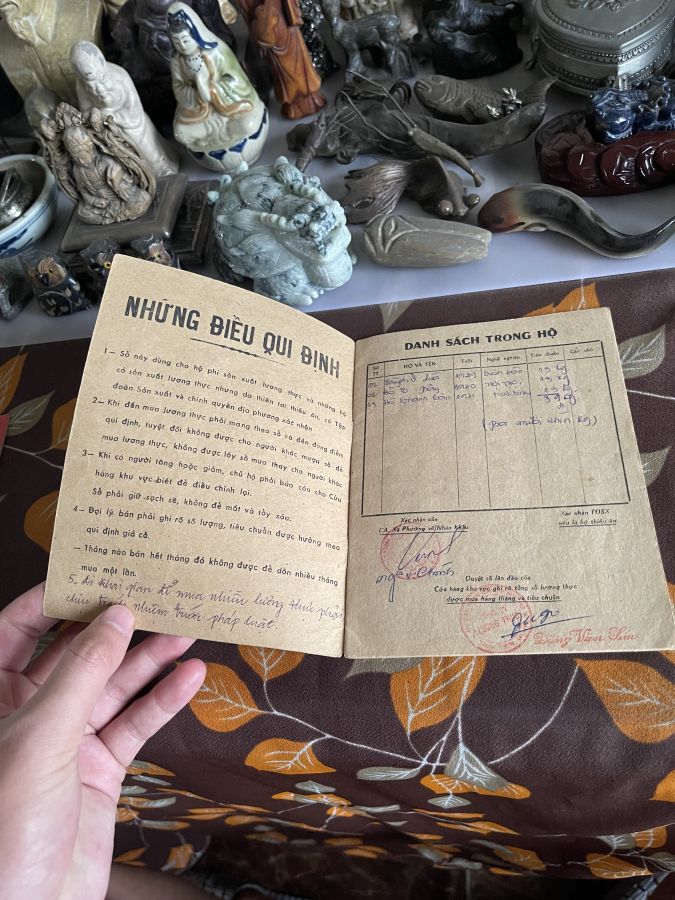 NHỮNG ĐIỀU QUI ĐỊNH
1 — Sổ này dùng cho hộ phi sản xuất lương thực và những hộ
có sản xuất lương thực nhưng do thiên tai thiếu ăn, có Tập
đoàn Sản xuất và chính quyền địa phương xác nhận.
2 — Khi đến mua lương thực phải mang theo sổ và đến đúng điểm
qui định, tuyệt đối không được cho người khác mượn sổ để
mua lương thực, không được lấy sổ mua thay cho người khác
3 — Khi có người tăng hoặc giảm, chủ hộ phải báo cáo cho Cửa
hàng khu vực biết để điều chỉnh lại.
Sổ phải giữ sạch sẽ, không để mất và tẩy xóa.
4 — Đại lý bán phải ghi rõ số lượng, tiêu chuẩn được hưởng theo
qui định giá cả.
— Tháng nào bán hết tháng đó không được để dồn nhiều tháng
mua một lần.
5. Ai khai gian để mua nhiều lương thực phải
chịu trách nhiệm trước pháp luật.
DANH SÁCH TRONG HỘ
Số TT HỌ VÀ TÊN Tuổi Nghề nghiệp Tiêu chuẩn Ghi chú
01 buôn bán 13 kg
02 nội trợ 13 kg
03 13 kg
39 kg
(Ba mươi chín kg)
Xác nhận của
CA. Xã Phường về Nhân Khẩu
Xác nhận TĐSX
nếu là hộ thiếu ăn
Duyệt sổ lần đầu của
Cửa hàng khu vực ghi rõ tổng số lương thực
được mua hàng tháng và tiêu chuẩn
Đặng Văn Sửu